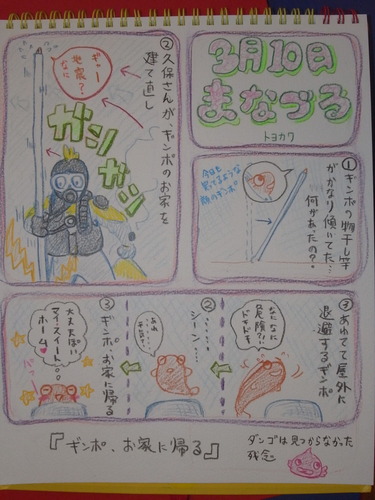 3月10日
まなづる
トヨカワ
①ギンポの物干し竿
がかなり傾いてた…
何があったの?
今日も
笑ってるような
顔のギンポ
②久保さんが、ギンポのお家を
建て直し
ギャー
地震?!
なに
ガン
ガン
③あわてて屋外に
退避するギンポ
なになに
危険?!
ドキドキ
②
……
シーン……
あれ
平気?
③
ギンポ、お家に帰る
大丈夫ぽい
マイスイート
ホーム
『ギンポ、お家に帰る』
ダンゴは見つからなかった
残念